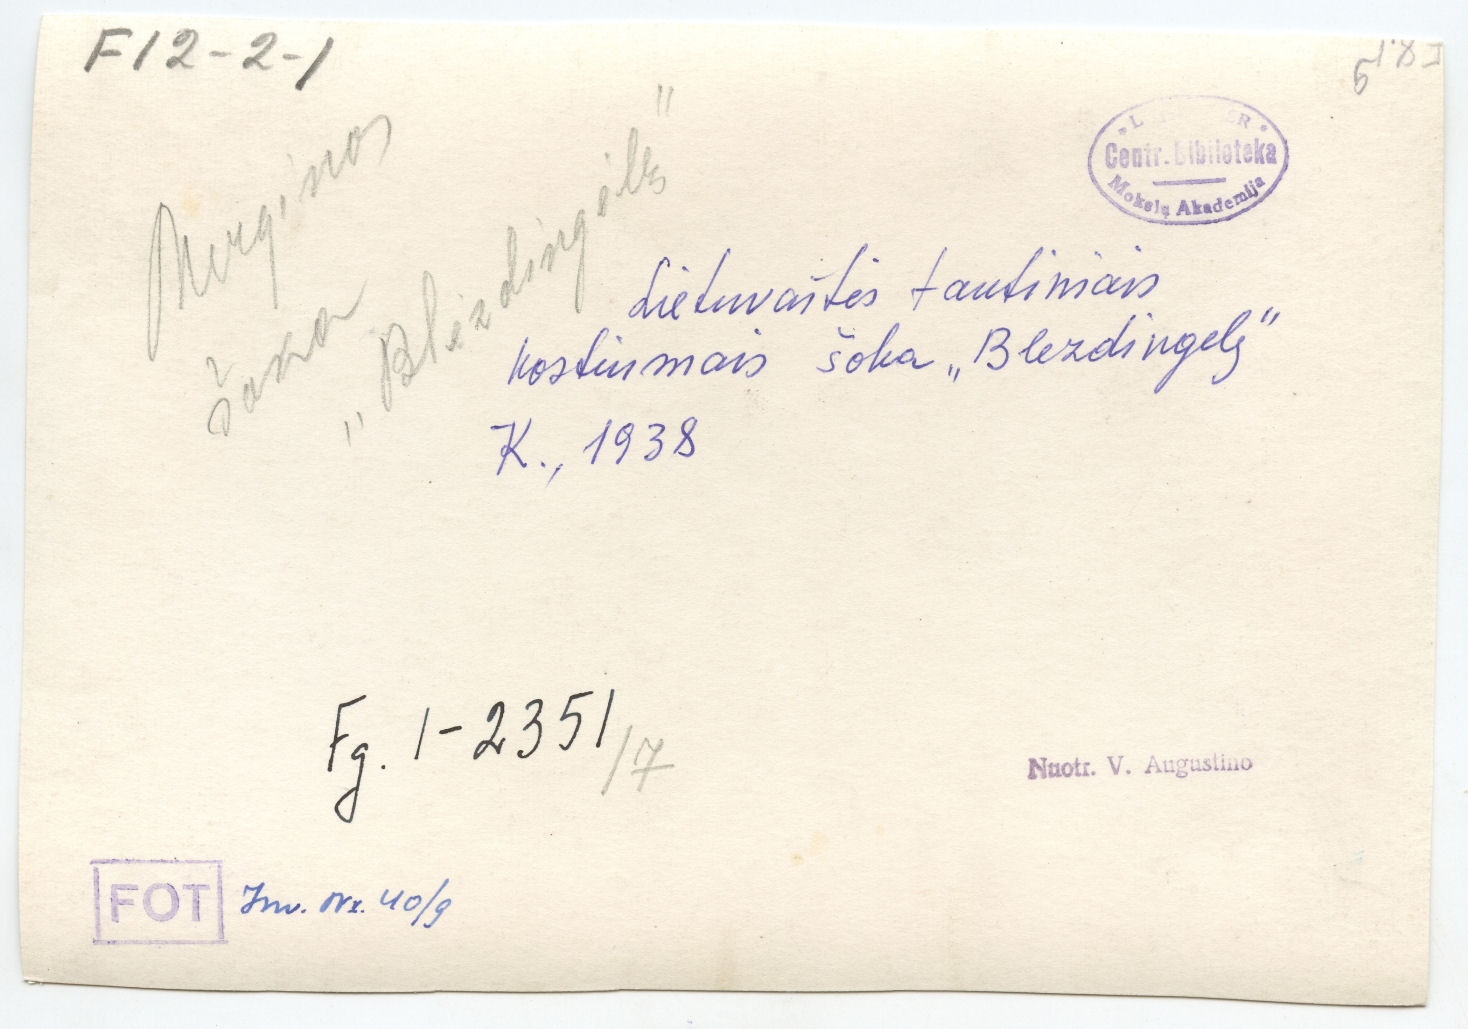 F12-2-1
Merginos
šoka
"Blezdingėlę"
Centr. biblioteka
Mokslų Akademija
Lietuvaitės tautiniais
kostiumais šoka „Blezdingelę"
K., 1938
Fg. 1-2351/7
Nuotr. V. Augustino
FOT Inv. Nr. 40/9